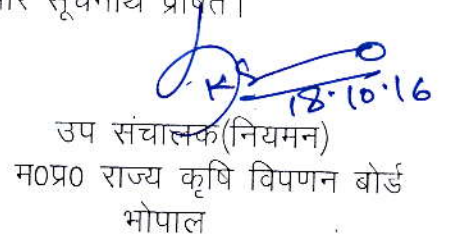 सूचनार्थ प्रेषित।
18.10.16
उप संचालक(नियमन)
म0प्र0 राज्य कृषि विपणन बोर्ड
भोपाल